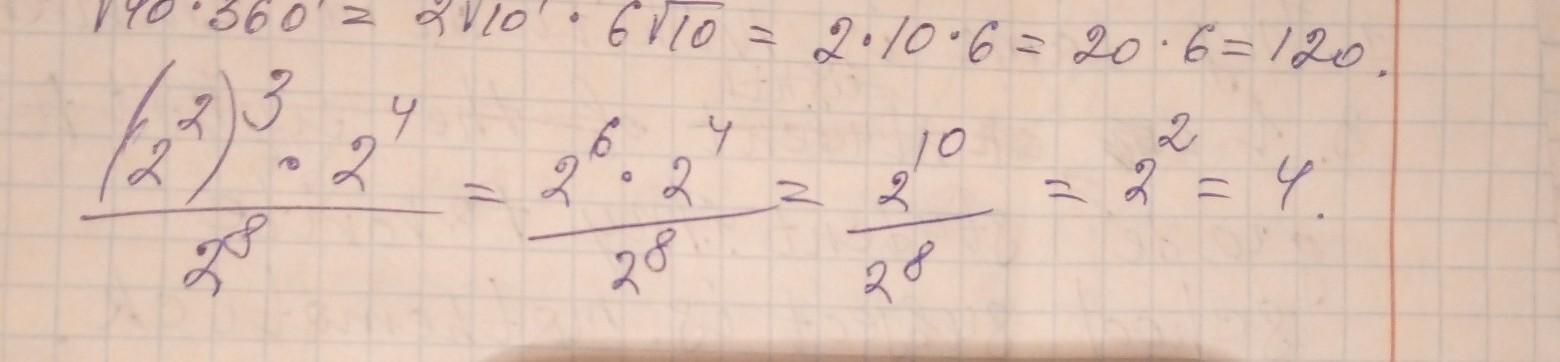 √40·360 = 2√10 · 6√10 = 2·10·6 = 20·6 = 120.
(2²)³ · 2⁴ / 2⁸ = 2⁶ · 2⁴ / 2⁸ = 2¹⁰ / 2⁸ = 2² = 4.